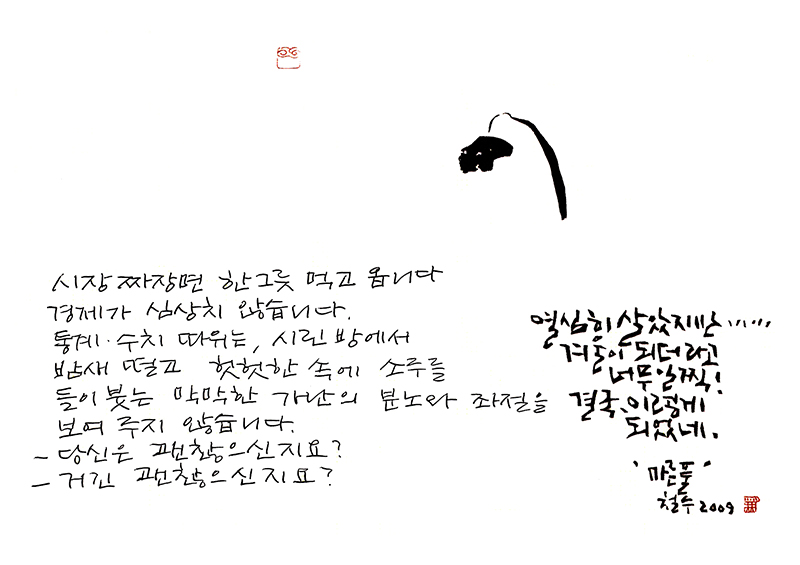 시장 짜장면 한그릇 먹고 옵니다
경제가 심상치 않습니다.
통계·수치 따위는, 시린 방에서
밤새 떨고 헛헛한 속에 소주를
들이붓는 막막한 가난의 분노와 좌절을
보여 주지 않습니다.
- 당신은 괜찮으신지요?
- 거긴 괜찮으신지요?
열심히 살았지만......
겨울이 되더라고
너무 일찍!
결국, 이렇게
되었네.
'마른풀'
철수 2009